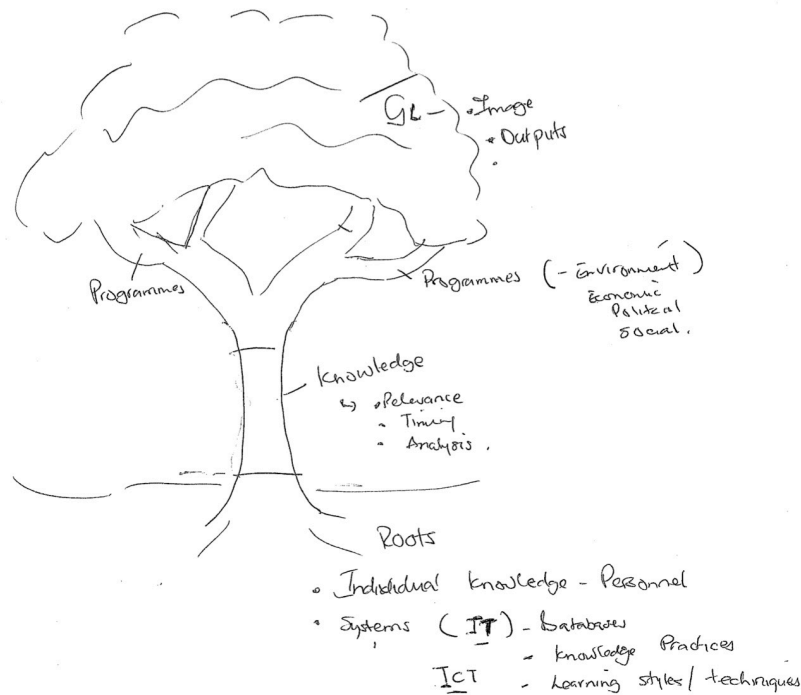 GL - • Image
• Outputs
•
Programmes
Programmes (- Environment)
Economic
Political
Social.
Knowledge
↳ • Relevance
• Timing
• Analysis.
Roots
• Individual Knowledge - Personnel
• Systems (IT) - Databases
- Knowledge Practices
ICT - Learning styles / techniques